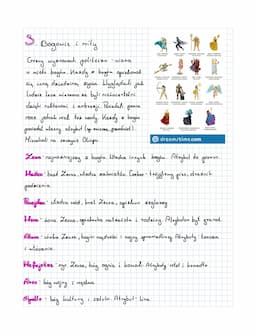 3. Bogowie i mity
Grecy wyznawali politeizm - wiara
w wielu bogów. Każdy z bogów opiekował
się inną dziedziną, bogowie wyglądali jak
ludzie lecz wieczni i byli nieśmiertelni
dzięki nektarowi i ambrozji. Posiadali ponad
moce jednak mieli też wady. Każdy z bogów
posiadał własny atrybut (np. piorun, ).
Mieszkali na szczycie Olimpu.
dreamstime.com
Zeus - najważniejszy z bogów. Władca innych bogów. Atrybut to piorun.
Hades - brat Zeusa, władca zaświatów. Cerber - trzygłowy pies, strażnik
podziemia.
Posejdon - władca mórz, brat Zeusa, atrybut
Hera - żona Zeusa, opiekunka małżeństw i rodziny. Atrybutem był granat.
Atena - córka Zeusa, bogini mądrości i wojny sprawiedliwej. Atrybuty
i
Hefajstos - syn Zeusa, bóg ognia i kowali. Atrybuty młot i kowadło
Ares - bóg wojny i
Apollo - bóg kultury i sztuki. Atrybut - lira.